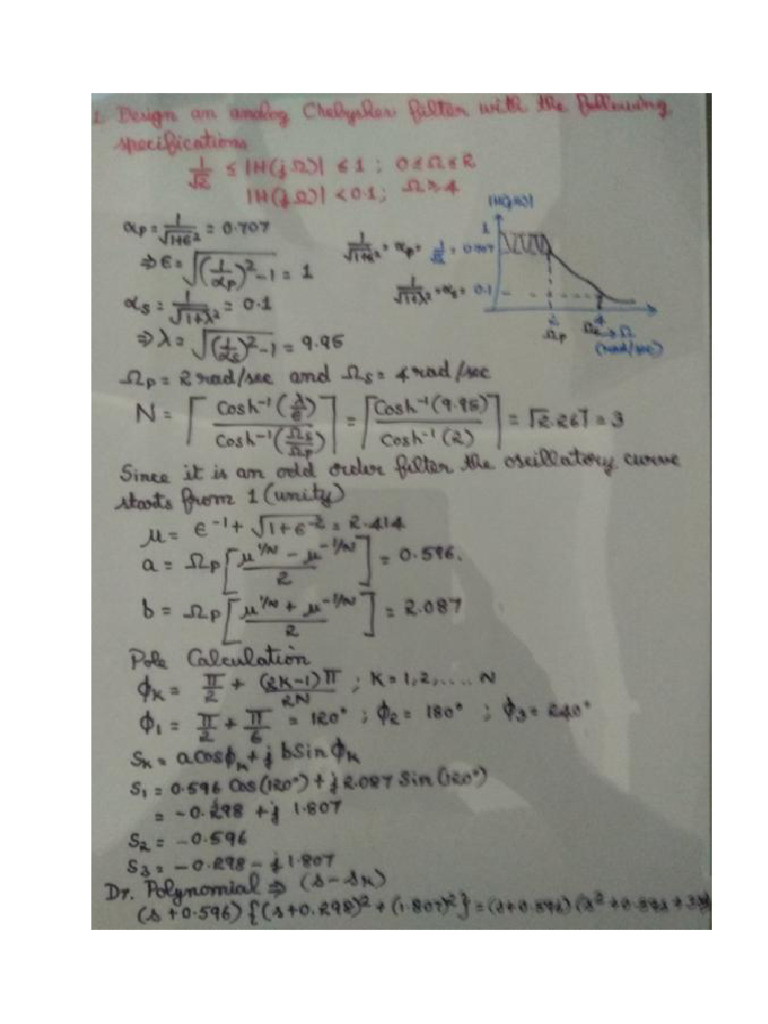 1. Design an analog Chebyshev filter with the following
specifications
1/√2 ≤ |H(jΩ)| ≤ 1 ; 0 ≤ Ω ≤ 2
|H(jΩ)| < 0.1 ; Ω ≥ 4
|H(jΩ)|
1
αp = 1/√(1+ε²) = 0.707
1/√(1+ε²) = αp = 1/√2 = 0.707
⇒ ε = √((1/αp)² - 1) = 1
1/√(1+λ²) = αs = 0.1
αs = 1/√(1+λ²) = 0.1
⇒ λ = √((1/αs)² - 1) = 9.95
2 4
Ωp Ωs → Ω
(rad/sec)
Ωp = 2 rad/sec and Ωs = 4 rad/sec
N = ⌈Cosh⁻¹(λ/ε) / Cosh⁻¹(Ωs/Ωp)⌉ = ⌈Cosh⁻¹(9.95) / Cosh⁻¹(2)⌉ = ⌈2.267⌉ = 3
Since it is an odd order filter the oscillatory curve
starts from 1 (unity)
μ = ε⁻¹ + √(1+ε⁻²) = 2.414
a = Ωp [(μ^(1/N) - μ^(-1/N)) / 2] = 0.596.
b = Ωp [(μ^(1/N) + μ^(-1/N)) / 2] = 2.087
Pole Calculation
φK = π/2 + (2K-1)π/2N ; K = 1, 2, .... N
φ1 = π/2 + π/6 = 120° ; φ2 = 180° ; φ3 = 240°
SK = a cos φK + j b Sin φK
S1 = 0.596 Cos(120°) + j 2.087 Sin(120°)
= -0.298 + j 1.807
S2 = -0.596
S3 = -0.298 - j 1.807
Dr. Polynomial ⇒ (s - sK)
(s + 0.596) {(s + 0.298)² + (1.807)²} = (s + 0.596) (s² + 0.596s +